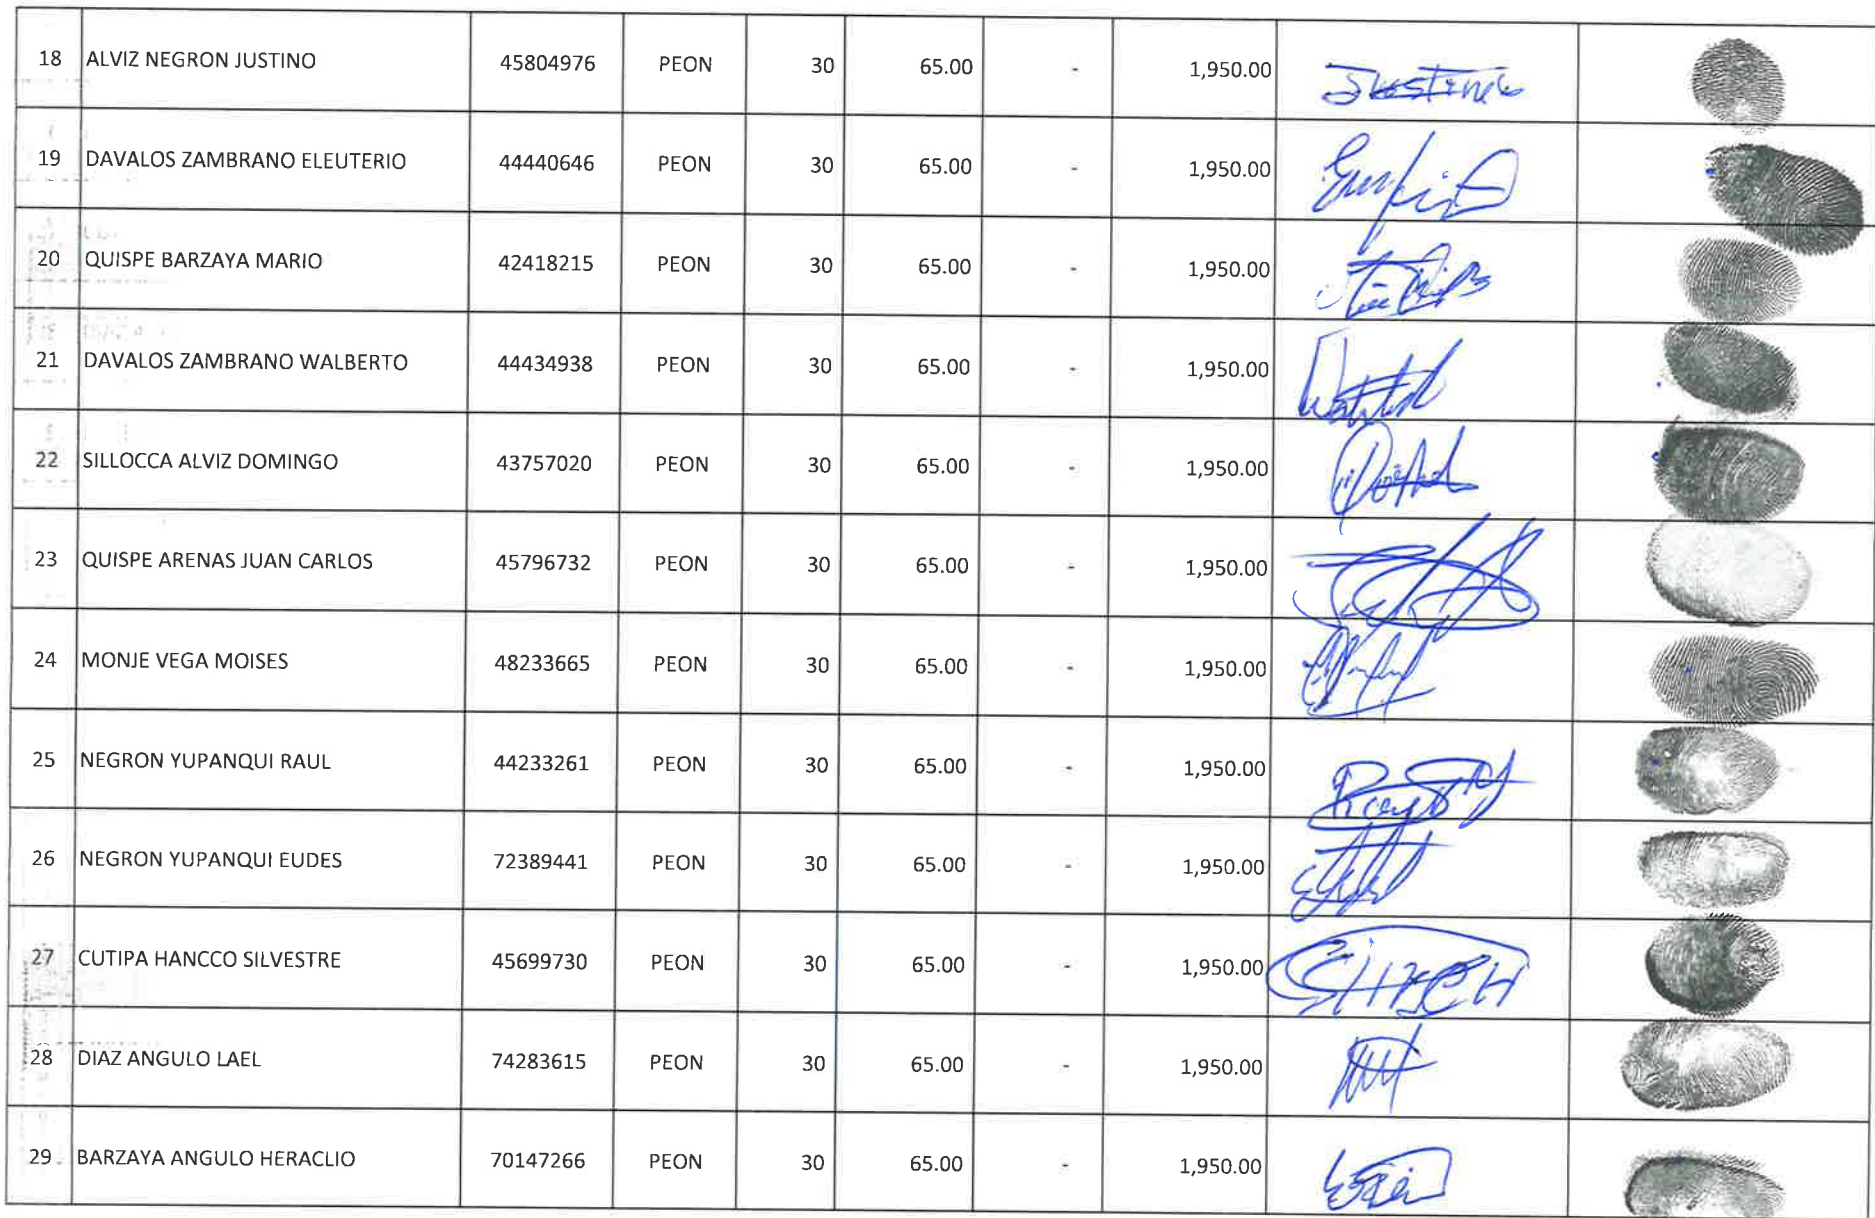 18 ALVIZ NEGRON JUSTINO 45804976 PEON 30 65.00 - 1,950.00 Justino
19 DAVALOS ZAMBRANO ELEUTERIO 44440646 PEON 30 65.00 - 1,950.00
20 QUISPE BARZAYA MARIO 42418215 PEON 30 65.00 - 1,950.00
21 DAVALOS ZAMBRANO WALBERTO 44434938 PEON 30 65.00 - 1,950.00
22 SILLOCCA ALVIZ DOMINGO 43757020 PEON 30 65.00 - 1,950.00
23 QUISPE ARENAS JUAN CARLOS 45796732 PEON 30 65.00 - 1,950.00
24 MONJE VEGA MOISES 48233665 PEON 30 65.00 - 1,950.00
25 NEGRON YUPANQUI RAUL 44233261 PEON 30 65.00 - 1,950.00
26 NEGRON YUPANQUI EUDES 72389441 PEON 30 65.00 - 1,950.00
27 CUTIPA HANCCO SILVESTRE 45699730 PEON 30 65.00 - 1,950.00
28 DIAZ ANGULO LAEL 74283615 PEON 30 65.00 - 1,950.00
29 BARZAYA ANGULO HERACLIO 70147266 PEON 30 65.00 - 1,950.00